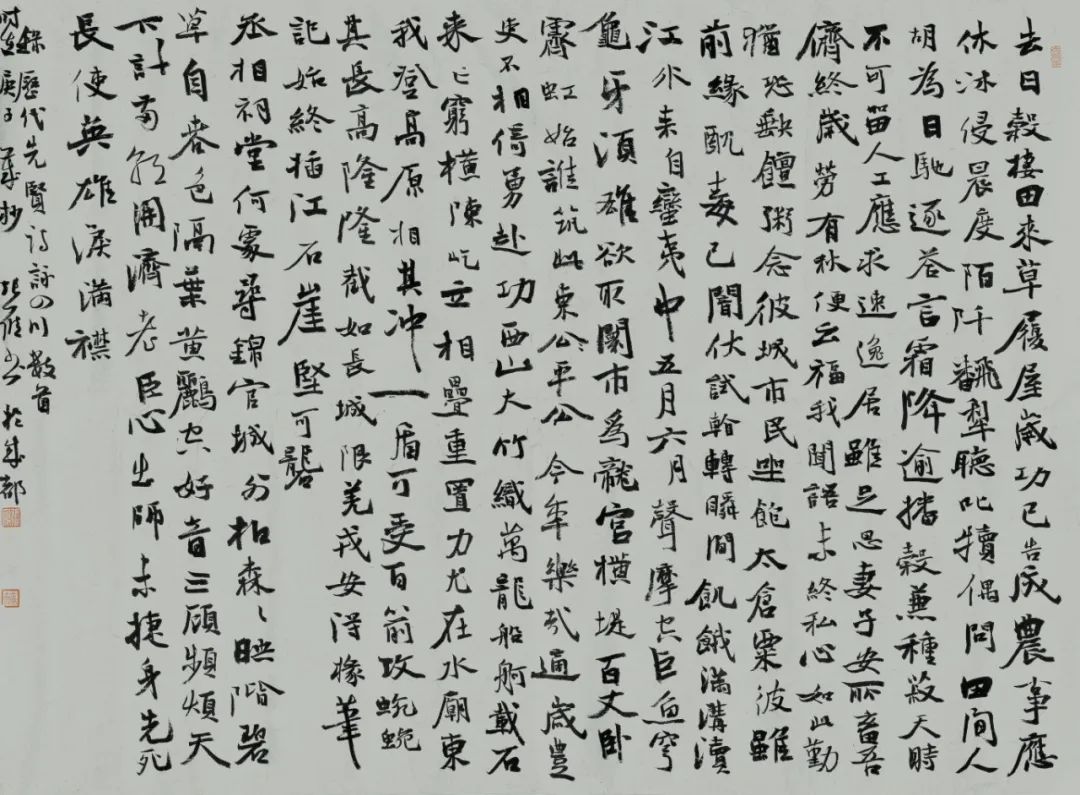 去日穀棲田來草履屋歲功已告成農事應
休沐侵晨度陌阡飜犂聽叱犢偶問田間人
胡為日馳逐答言霜降逾播穀兼種菽天時
不可留人工應求速逸居雖足思妻子安所畜吾
儕終歲勞有秋便云福我聞語未終私心如此勤
猶恐缺饘粥念彼城市民坐飽太倉粟彼雖
前緣酖毒已闇伏試看轉瞬間飢餓滿溝瀆
江水來自蠻夷中五月六月聲摩空巨魚穹
龜牙須雄欲取闤市為龍宮橫堤百丈臥
霽虹始誰筑此東公平公今年樂哉適歲豊
吏不相倚勇赴功西山大竹織萬龍船舸載石
來亡窮橫陳屹立相疊重置力尤在水廟東
我登高原相其沖一盾可受百箭攻蜿蜿
其長高隆隆截如長城限羌戎安得椽筆
記始終插江石崖堅可礱
丞相祠堂何處尋錦官城外柏森森映階碧
草自春色隔葉黃鸝空好音三顧頻煩天
下計兩朝開濟老臣心出師未捷身先死
長使英雄淚滿襟
錄歷代先賢詩詠四川數首
時在庚子 於成都